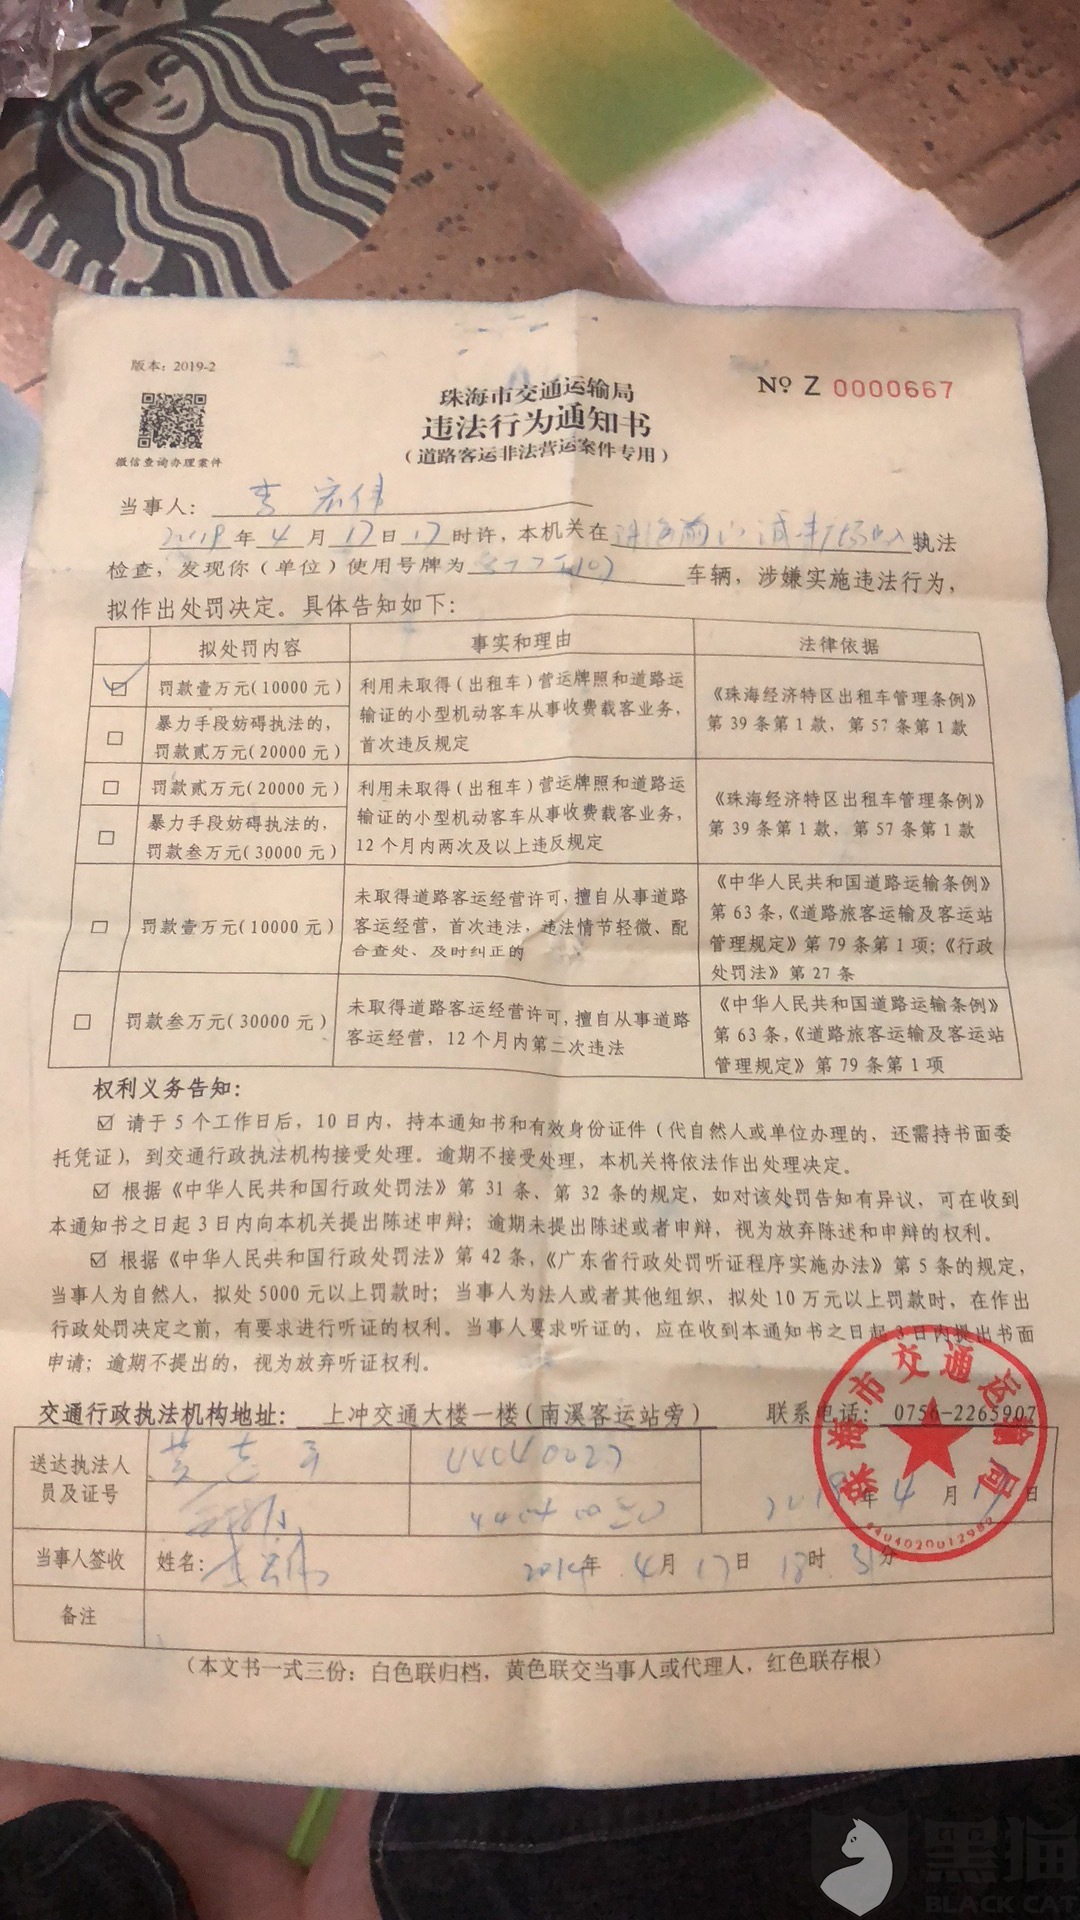 版本：2019-2
微信查询办理案件
珠海市交通运输局
违法行为通知书
（道路客运非法营运案件专用）
Nº Z 0000667
当事人：李宏伟
2019年4月17日17时许，本机关在珠海前山 执法
检查，发现你（单位）使用号牌为 车辆，涉嫌实施违法行为，
拟作出处罚决定。具体告知如下：
拟处罚内容 事实和理由 法律依据
☑ 罚款壹万元(10000元)
□ 暴力手段妨碍执法的，
罚款贰万元(20000元)
利用未取得（出租车）营运牌照和道路运
输证的小型机动客车从事收费载客业务，
首次违反规定
《珠海经济特区出租车管理条例》
第39条第1款，第57条第1款
□ 罚款贰万元(20000元)
□ 暴力手段妨碍执法的，
罚款叁万元(30000元)
利用未取得（出租车）营运牌照和道路运
输证的小型机动客车从事收费载客业务，
12个月内两次及以上违反规定
《珠海经济特区出租车管理条例》
第39条第1款，第57条第1款
□ 罚款壹万元(10000元)
未取得道路客运经营许可，擅自从事道路
客运经营，首次违法，违法情节轻微、配
合查处、及时纠正的
《中华人民共和国道路运输条例》
第63条，《道路旅客运输及客运站
管理规定》第79条第1项；《行政
处罚法》第27条
□ 罚款叁万元(30000元)
未取得道路客运经营许可，擅自从事道路
客运经营，12个月内第二次违法
《中华人民共和国道路运输条例》
第63条，《道路旅客运输及客运站
管理规定》第79条第1项
权利义务告知：
☑ 请于5个工作日后，10日内，持本通知书和有效身份证件（代自然人或单位办理的，还需持书面委
托凭证），到交通行政执法机构接受处理。逾期不接受处理，本机关将依法作出处理决定。
☑ 根据《中华人民共和国行政处罚法》第31条、第32条的规定，如对该处罚告知有异议，可在收到
本通知书之日起3日内向本机关提出陈述申辩；逾期未提出陈述或者申辩，视为放弃陈述和申辩的权利。
☑ 根据《中华人民共和国行政处罚法》第42条，《广东省行政处罚听证程序实施办法》第5条的规定，
当事人为自然人，拟处5000元以上罚款时；当事人为法人或者其他组织，拟处10万元以上罚款时，在作出
行政处罚决定之前，有要求进行听证的权利。当事人要求听证的，应在收到本通知书之日起3日内提出书面
申请；逾期不提出的，视为放弃听证权利。
交通行政执法机构地址：上冲交通大楼一楼(南溪客运站旁) 联系电话：0756-2265907
送达执法人
员及证号
2019年4月17日
珠海市交通运输局
4404020012982
当事人签收 姓名：李宏伟 2019年4月17日18时31分
备注
（本文书一式三份：白色联归档，黄色联交当事人或代理人，红色联存根）
黑猫
BLACK CAT